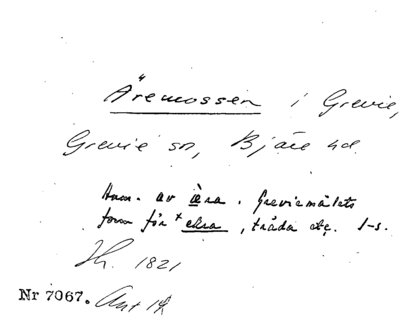 Äremossen i Grevie,
Grevie sn, Bjäre hd.
Hum. av æra. Greviemålets
form för *ekra, träda etc. I-s.
Jh. 1821
Nr 7067. Ant 19